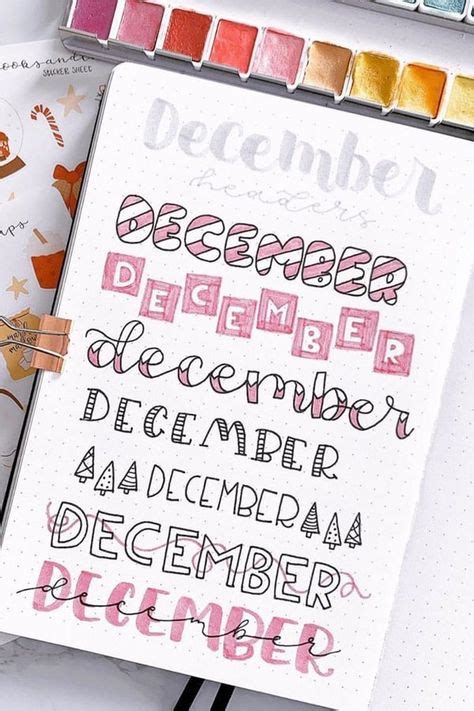 STICKER SHEET
December
headers
DECEMBER
DECEMBER
december
DECEMBER
DECEMBER
DECEMBER
DECEMBER
december